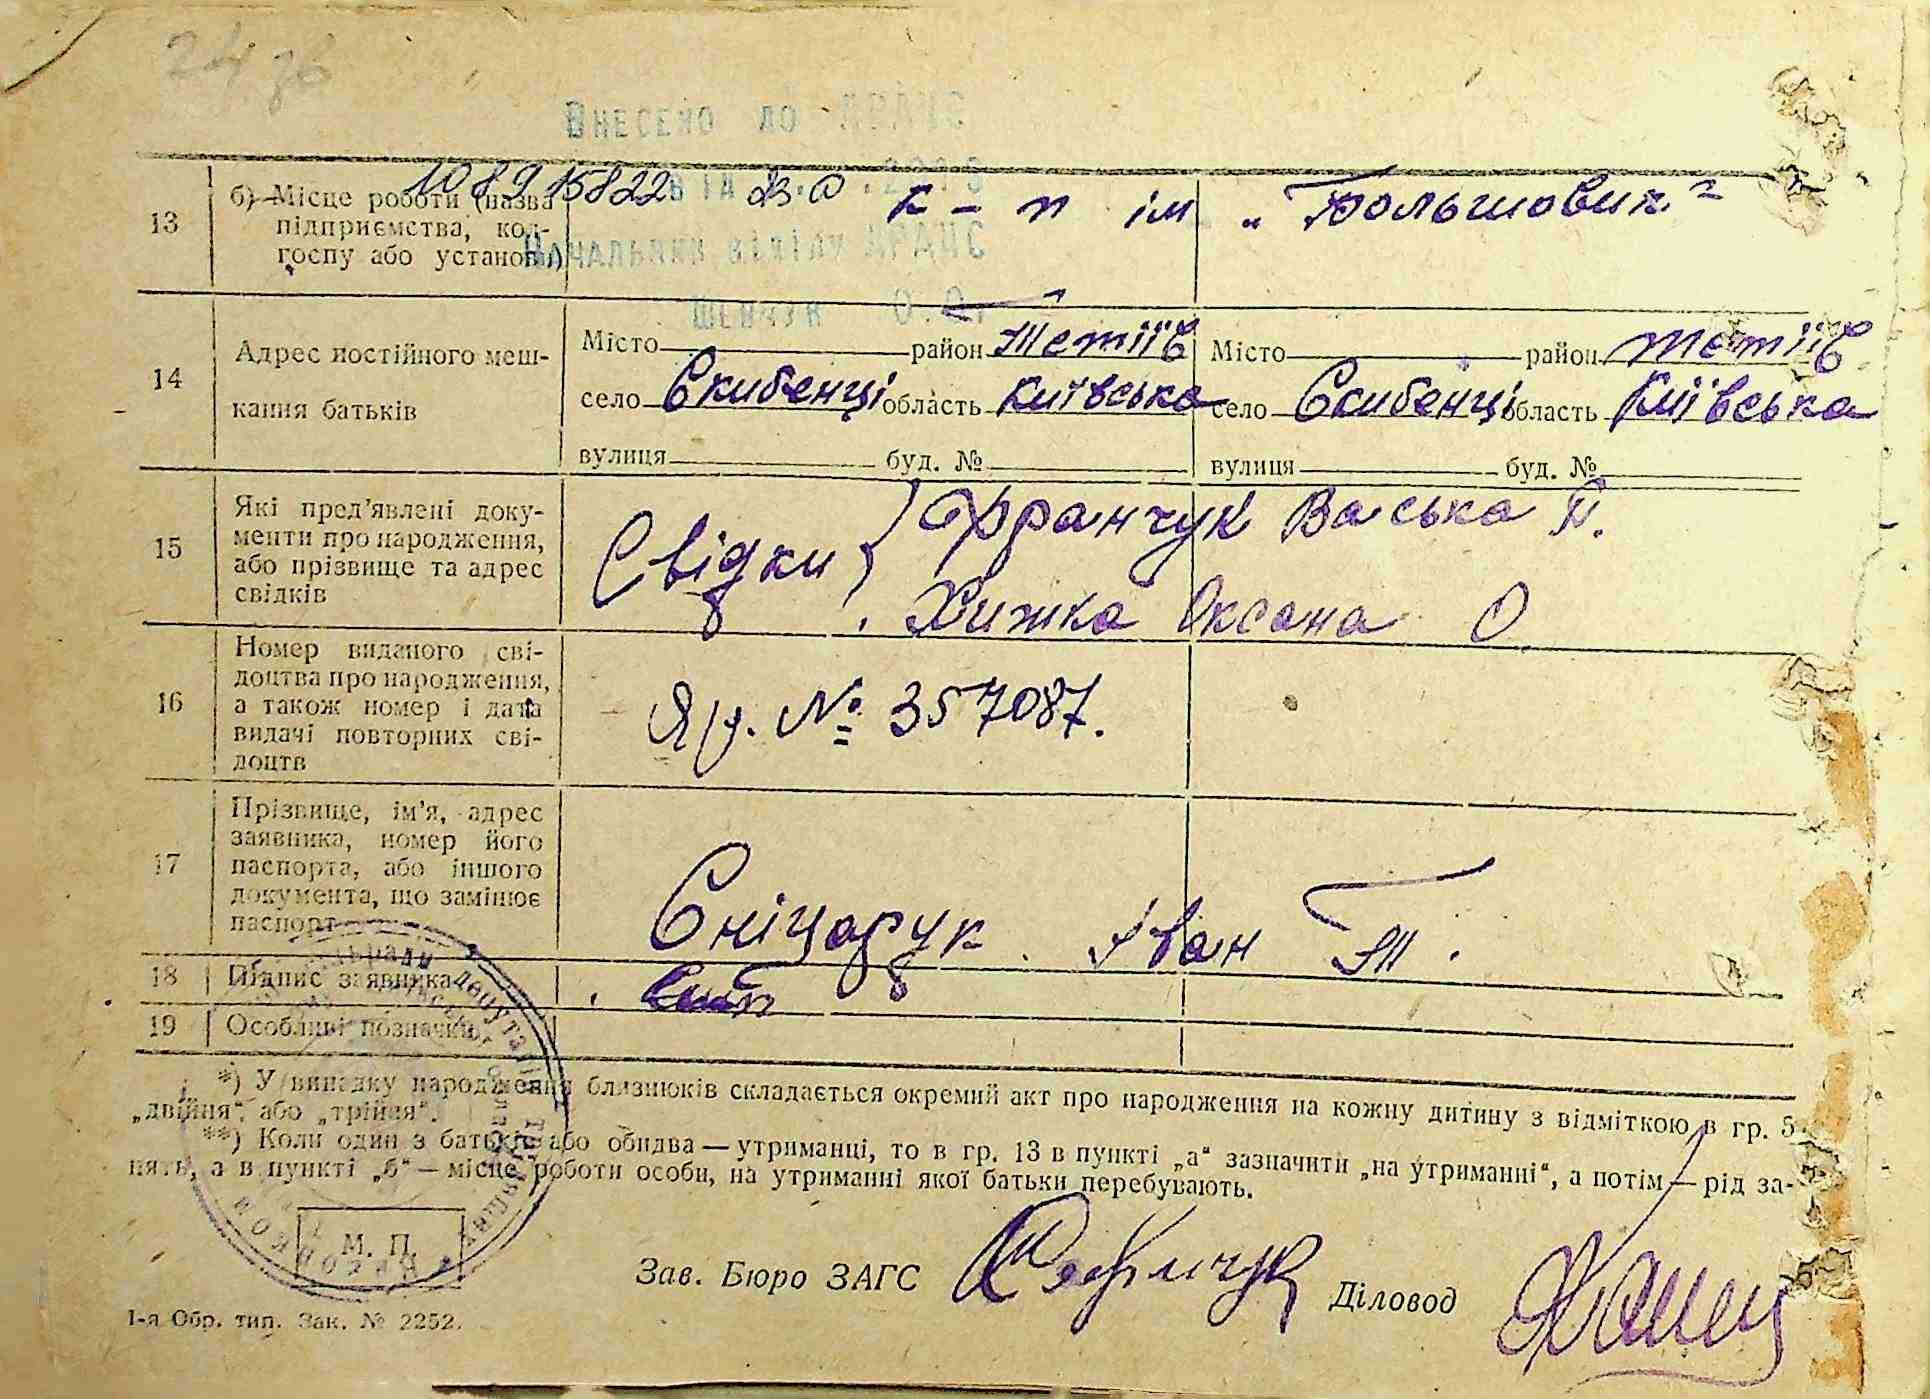 24 зв
Внесено до ДРАЦС
1089 15822
Начальник відділу ДРАЦС
13 б) Місце роботи (назва підприємства, кол-
госпу або установи)
к-п ім „Большовик"
14 Адрес постійного меш-
кання батьків
Місто район Тетіїв Місто район Тетіїв
село Скибенці область Київська село Скибенці область Київська
вулиця буд. № вулиця буд. №
15 Які пред'явлені доку-
менти про народження,
або прізвище та адрес
свідків
Свідки } Франчук Васька П.
Хижка Оксана О
16 Номер виданого сві-
доцтва про народження,
а також номер і дата
видачі повторних сві-
доцтв
Яр. № 357087.
17 Прізвище, ім'я, адрес
заявника, номер його
паспорта, або іншого
документа, що замінює
паспорт
Сніцарук Іван Т.
18 Підпис заявника
19 Особливі позначки
*) У випадку народження близнюків складається окремий акт про народження на кожну дитину з відміткою в гр. 5
„двійня", або „трійня".
**) Коли один з батьків або обидва — утриманці, то в гр. 13 в пункті „а" зазначити „на утриманні", а потім — рід за-
нять, а в пункті „б" — місце роботи особи, на утриманні якої батьки перебувають.
М. П.
Зав. Бюро ЗАГС Діловод
1-я Обр. тип. Зак. № 2252.